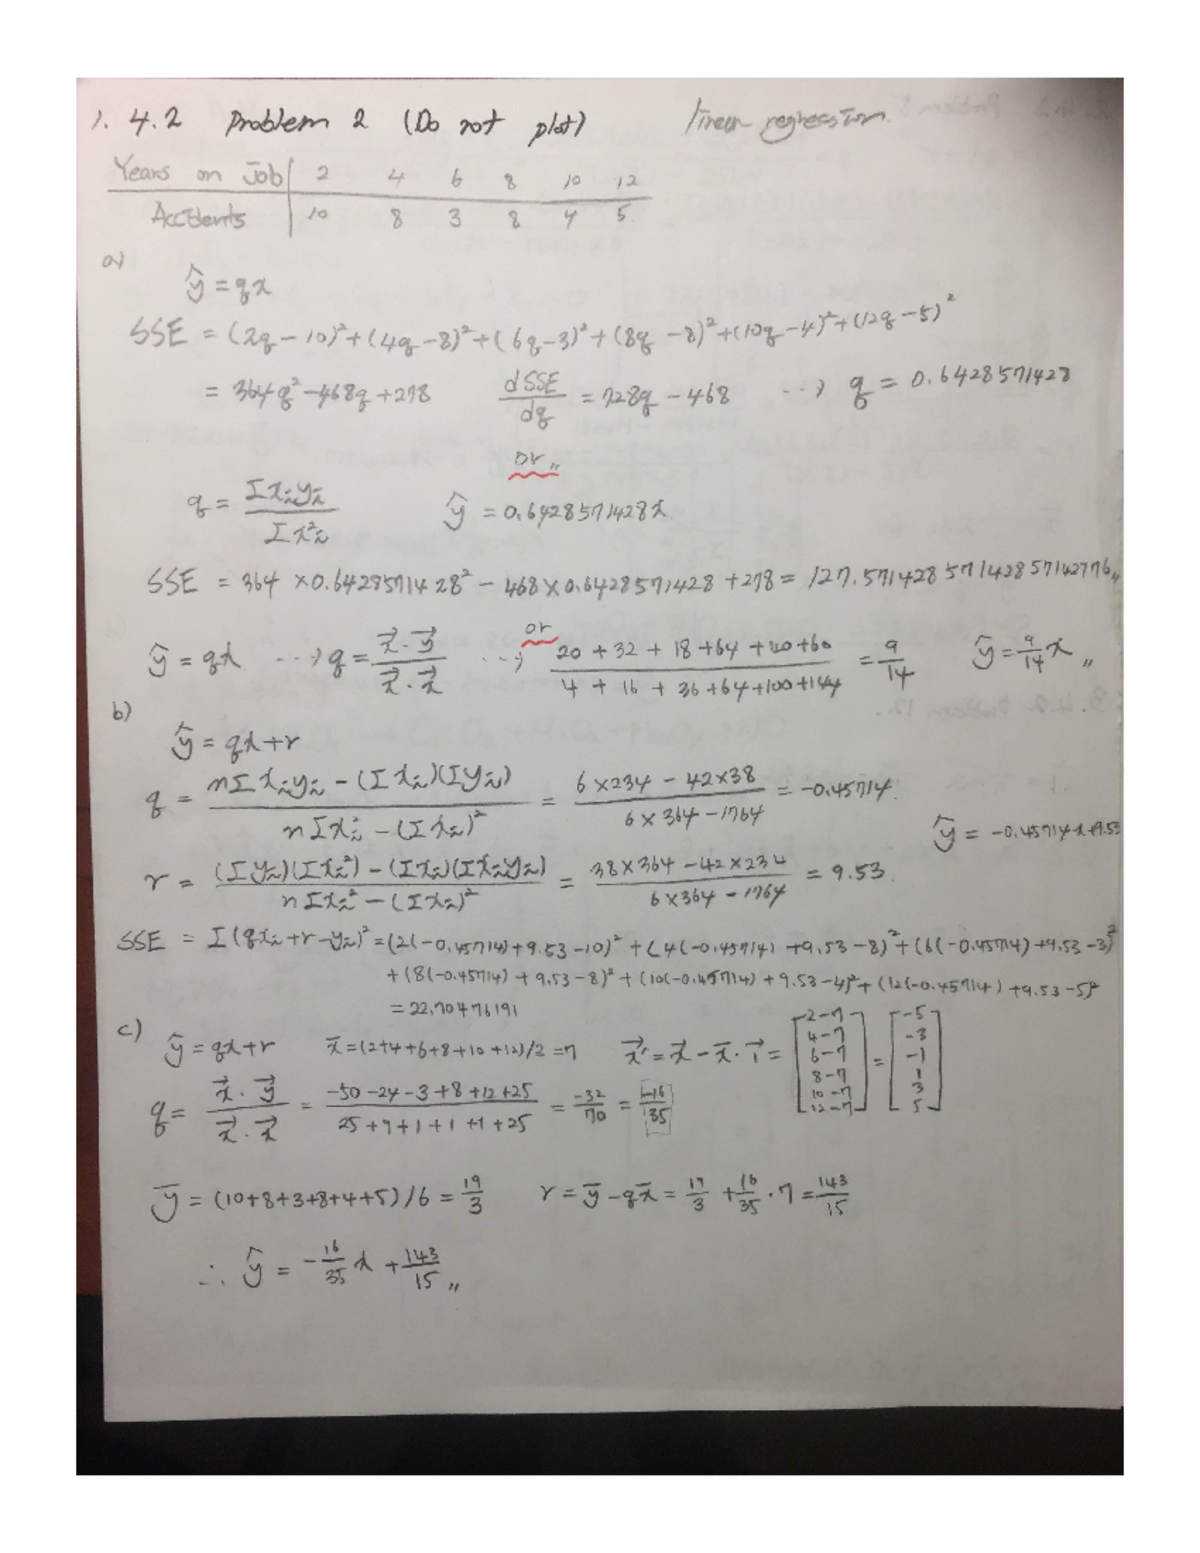 1. 4.2 Problem 2 (Do not plot) linear regression.
Years on Job | 2 4 6 8 10 12
Accidents | 10 8 3 8 4 5.
a)
ŷ = qx
SSE = (2q - 10)² + (4q - 8)² + (6q - 3)² + (8q - 8)² + (10q - 4)² + (12q - 5)²
= 364q² - 468q + 278 dSSE/dq = 728q - 468 ⋯→ q = 0.6428571428
or,,
q = Σxᵢyᵢ / Σxᵢ² ŷ = 0.6428571428x
SSE = 364 × 0.6428571428² - 468 × 0.6428571428 + 278 = 127.57142857142857142776,,
or
ŷ = qx ⋯→ q = x⃗·y⃗ / x⃗·x⃗ ⋯→ (20 + 32 + 18 + 64 + 40 + 60) / (4 + 16 + 36 + 64 + 100 + 144) = 9/14 ŷ = 9/14 x,,
b)
ŷ = qx + r
q = (nΣxᵢyᵢ - (Σxᵢ)(Σyᵢ)) / (nΣxᵢ² - (Σxᵢ)²) = (6×234 - 42×38) / (6×364 - 1764) = -0.45714.
ŷ = -0.45714x+9.53
r = ((Σyᵢ)(Σxᵢ²) - (Σxᵢ)(Σxᵢyᵢ)) / (nΣxᵢ² - (Σxᵢ)²) = (38×364 - 42×234) / (6×364 - 1764) = 9.53.
SSE = Σ(qxᵢ + r - yᵢ)² = (2(-0.45714) + 9.53 - 10)² + (4(-0.45714) + 9.53 - 8)² + (6(-0.45714) + 9.53 - 3)²
+ (8(-0.45714) + 9.53 - 8)² + (10(-0.45714) + 9.53 - 4)² + (12(-0.45714) + 9.53 - 5)²
= 22.70476191
c)
ŷ = qx + r x̄ = (2+4+6+8+10+12)/2 = 7 x⃗' = x⃗ - x̄·1⃗ = [2-7 4-7 6-7 8-7 10-7 12-7] = [-5 -3 -1 1 3 5]
q = x⃗·y⃗ / x⃗·x⃗ = (-50 - 24 - 3 + 8 + 12 + 25) / (25 + 9 + 1 + 1 + 9 + 25) = -32/70 = -16/35
ȳ = (10+8+3+8+4+5)/6 = 19/3 r = ȳ - qx̄ = 19/3 + 16/35 · 7 = 143/15
∴ ŷ = -16/35 x + 143/15,,